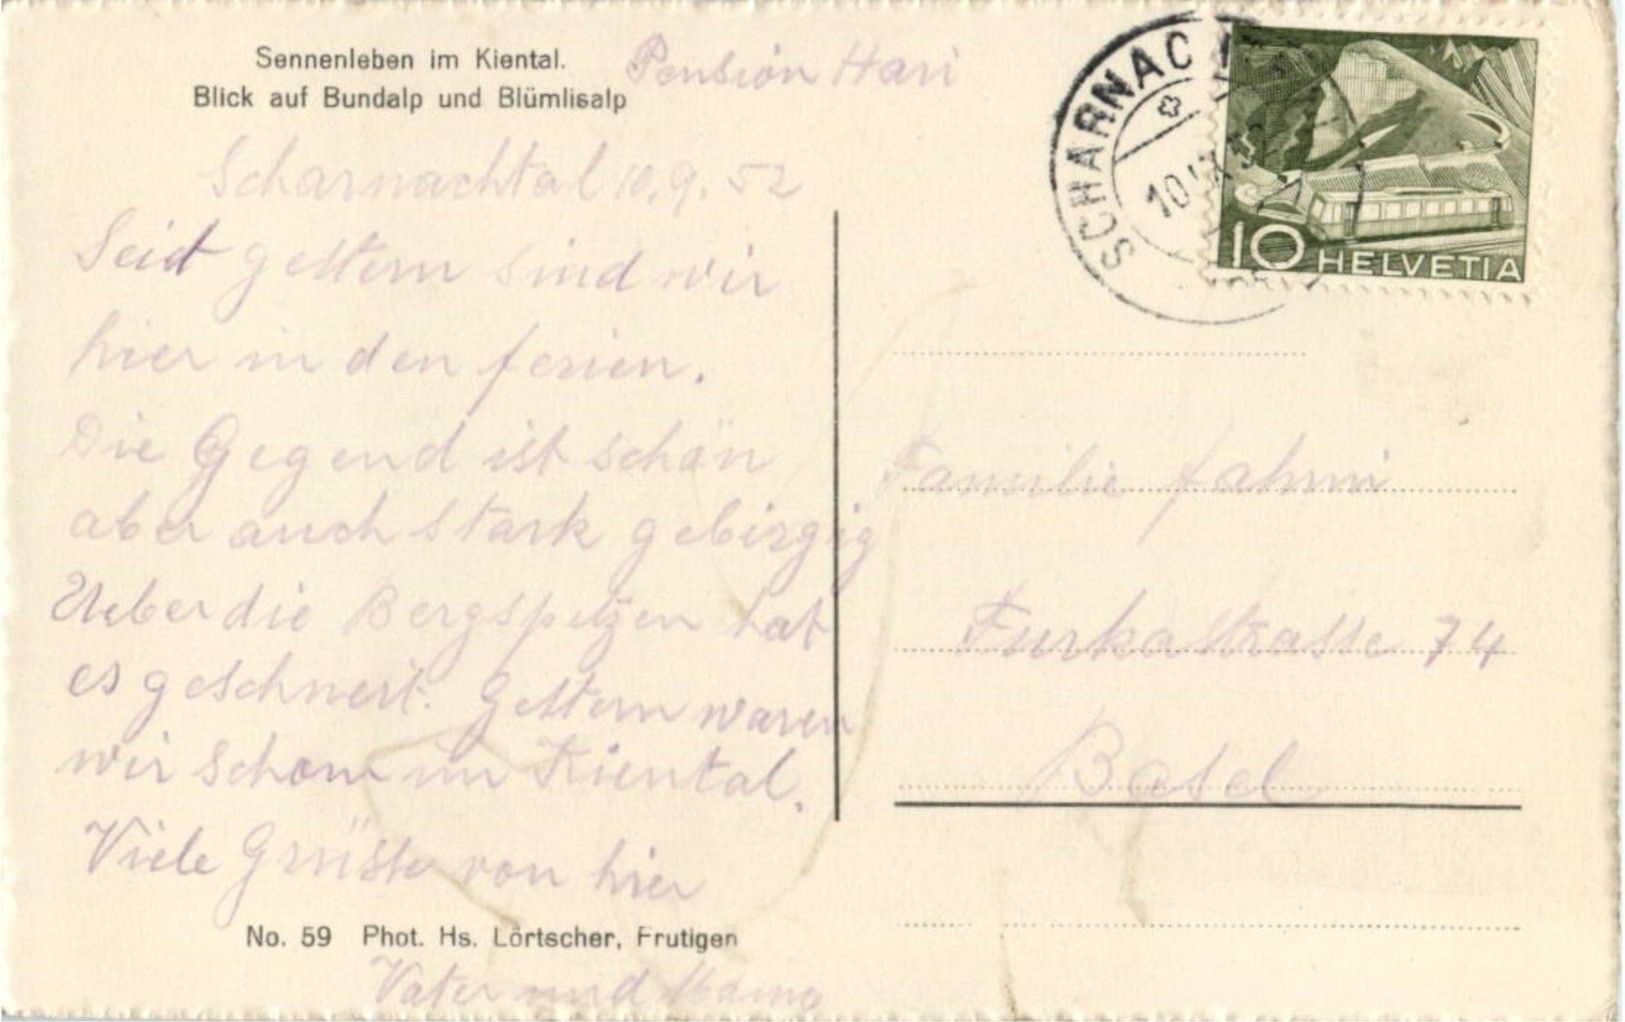 Sennenleben im Kiental.
Blick auf Bundalp und Blümlisalp
Pension Hari
Scharnachtal 10.9.52
Seit gestern sind wir
hier in den ferien.
Die Gegend ist schön
aber auch stark gebirgig
Ueber die Bergspitzen hat
es geschneit. Gestern waren
wir schon im Kiental.
Viele Grüsse von hier
No. 59 Phot. Hs. Lörtscher, Frutigen
Vater und Mama
SCHARNAC
10 IX
10 HELVETIA
Familie fahrni
Furkastrasse 74
Basel